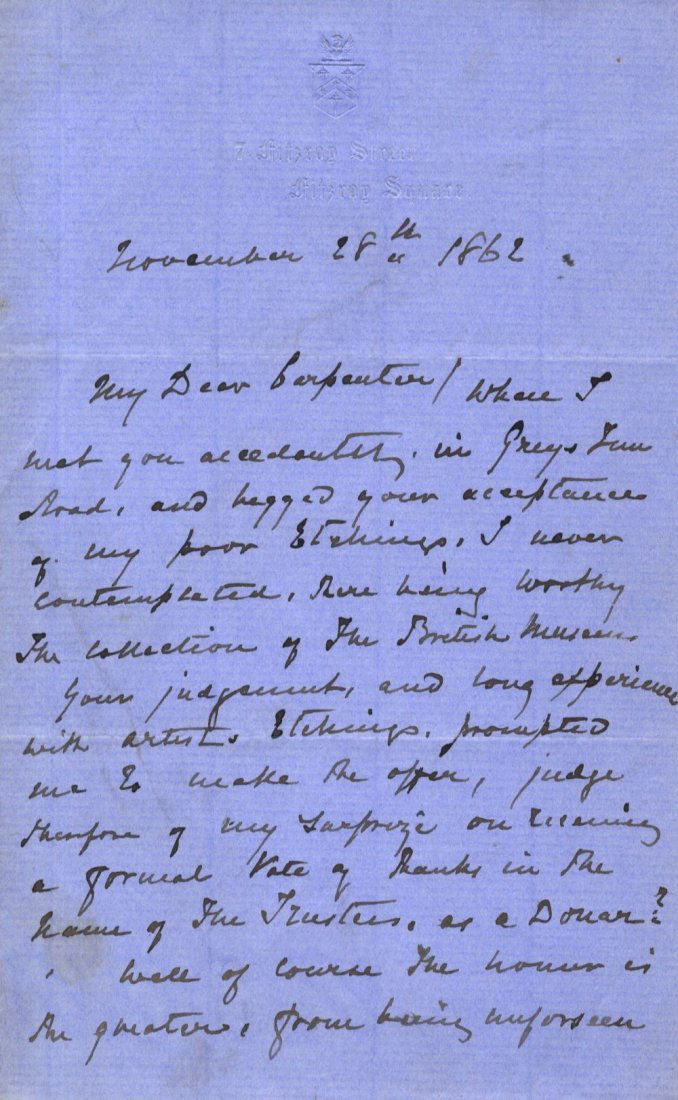 7 Fitzroy Street
Fitzroy Square
November 28th 1862
My Dear Carpenter / When I
met you accedently, in Greys Inn
Road, and begged your acceptance
of my poor Etchings, I never
contemplated, their being worthy
The collection of The British Museum
Your judgement, and long experience
with artists Etchings, prompted
me to make the offer, judge
therefore of my surprize on receiving
a formal Vote of Thanks in the
Name of The Trustees, as a Donar?
Well of course The honor is
the greater, from being unforseen